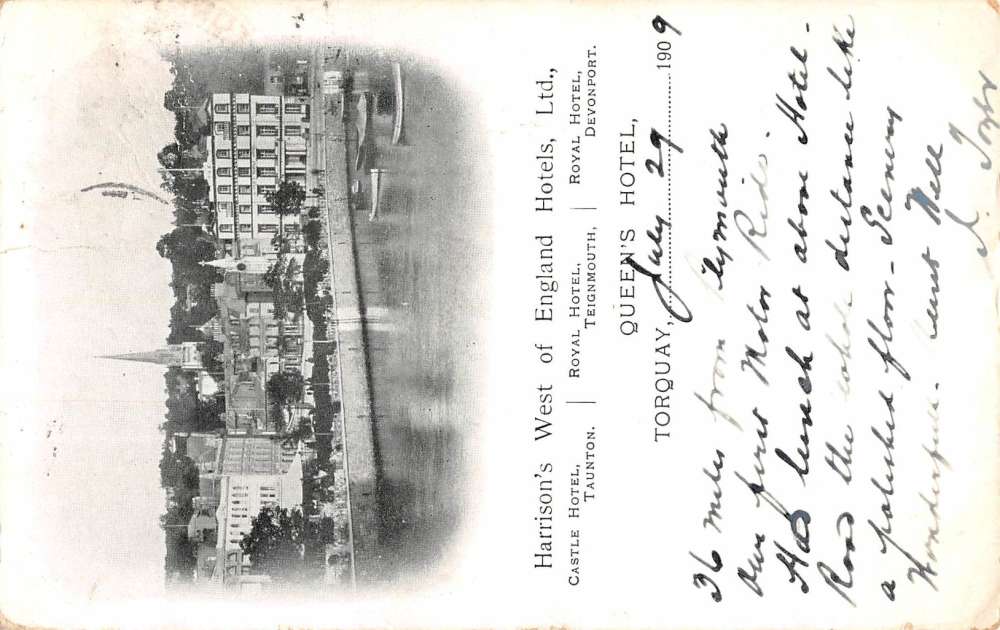 Harrison's West of England Hotels, Ltd.,
CASTLE HOTEL, TAUNTON. | ROYAL HOTEL, TEIGNMOUTH, | ROYAL HOTEL, DEVONPORT.
QUEEN'S HOTEL,
TORQUAY, July 29 1909
36 miles from Plymouth
Our first Motor Ride.
Had lunch at above Hotel -
Road the whole distance like
a polished floor - Scenery
Wonderful. Well